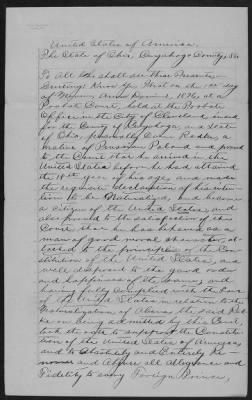 United States of America,
The State of Ohio, Cuyahoga County, SS.
To All who shall see these Presents
Greeting: Know Ye, that on the 1st day
of Anno Domini, 1876, at a
Probate Court, held at the Probate
Office in the City of Cleveland, in and
for the County of Cuyahoga, and State
of Ohio, personally Came a
Native of Prussian Poland and proved
to the Court that he arrived in the
United States before he had attained
the 18th year of his age, and made
the requisite declaration of his inten
tion to be Naturalized, and become
a citizen of the United States, and
also proved to the satisfaction of this
Court that he has behaved as a
man of good moral character, at-
tached to the principles of the Con
stitution of the United States, and
well disposed to the good order
and happiness of the same; and
having fully Complied with the laws
of the United States in relation to the
Naturalization of Aliens, the said
on being admitted by this Court,
took the oath to support the Constitu-
tion of the United States of America,
and to Absolutely and Entirely Re-
nounce and Abjure all Allegiance and
Fidelity to every Foreign Prince,